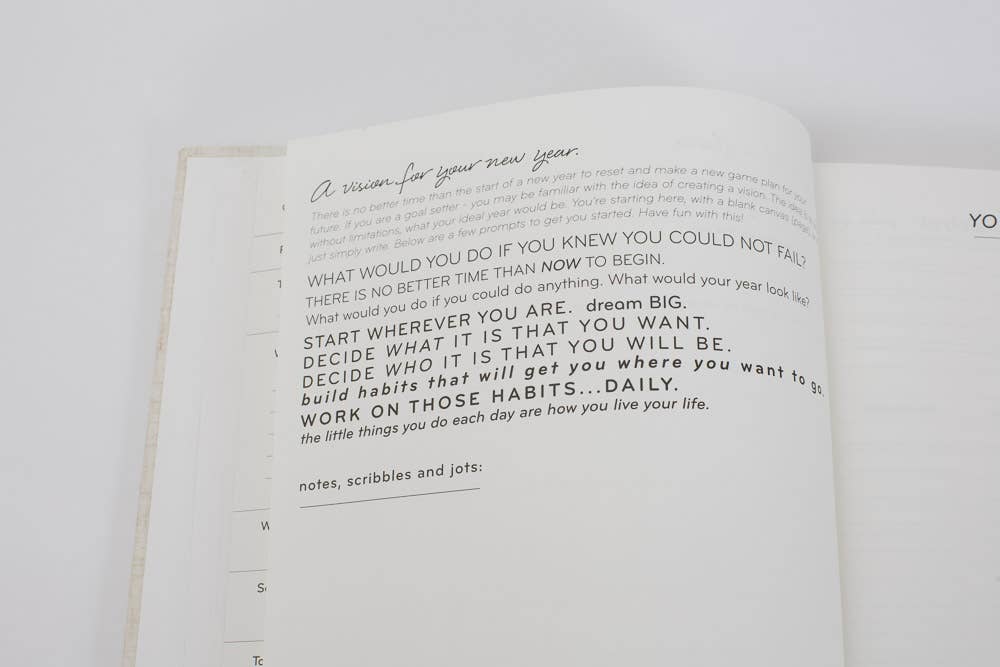 A vision for your new year.
There is no better time than the start of a new year to reset and make a new game plan for your
future. If you are a goal setter - you may be familiar with the idea of creating a vision. The idea is
without limitations, what your ideal year would be. You're starting here, with a blank canvas
just simply write. Below are a few prompts to get you started. Have fun with this!
WHAT WOULD YOU DO IF YOU KNEW YOU COULD NOT FAIL?
THERE IS NO BETTER TIME THAN NOW TO BEGIN.
What would you do if you could do anything. What would your year look like?
START WHEREVER YOU ARE. dream BIG.
DECIDE WHAT IT IS THAT YOU WANT.
DECIDE WHO IT IS THAT YOU WILL BE.
build habits that will get you where you want to go.
WORK ON THOSE HABITS...DAILY.
the little things you do each day are how you live your life.
notes, scribbles and jots:
YO
W